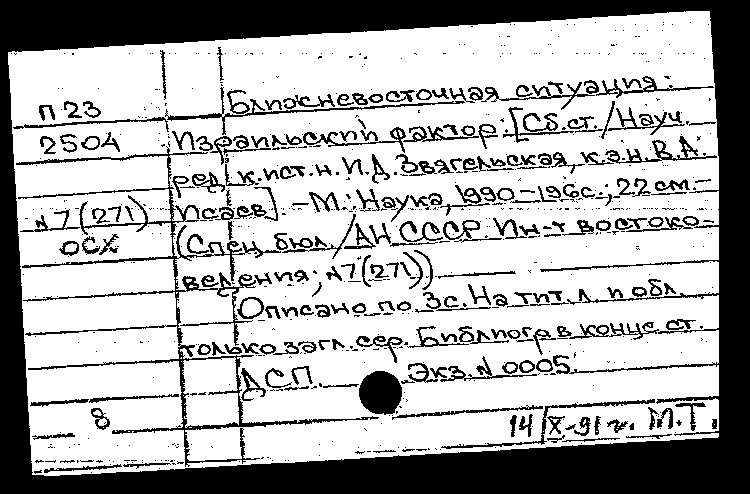 П 23
2504
N 7 (271)
ОСХ
Ближневосточная ситуация:
Израильский фактор: [Сб.ст. / Науч.
ред. к.ист.н. И.Д. Звягельская, к.э.н. В.А.
Исаев]. - М.: Наука, 1990 - 196с.; 22 см. -
(Спец. бюл. / АН СССР. Ин-т востоко-
ведения; N7 (271))
Описано по 3с. На тит. л. и обл.
только загл. сер. Библиогр в конце ст.
ДСП. Экз. N 0005.
8
14/X-91 г. М.Т.